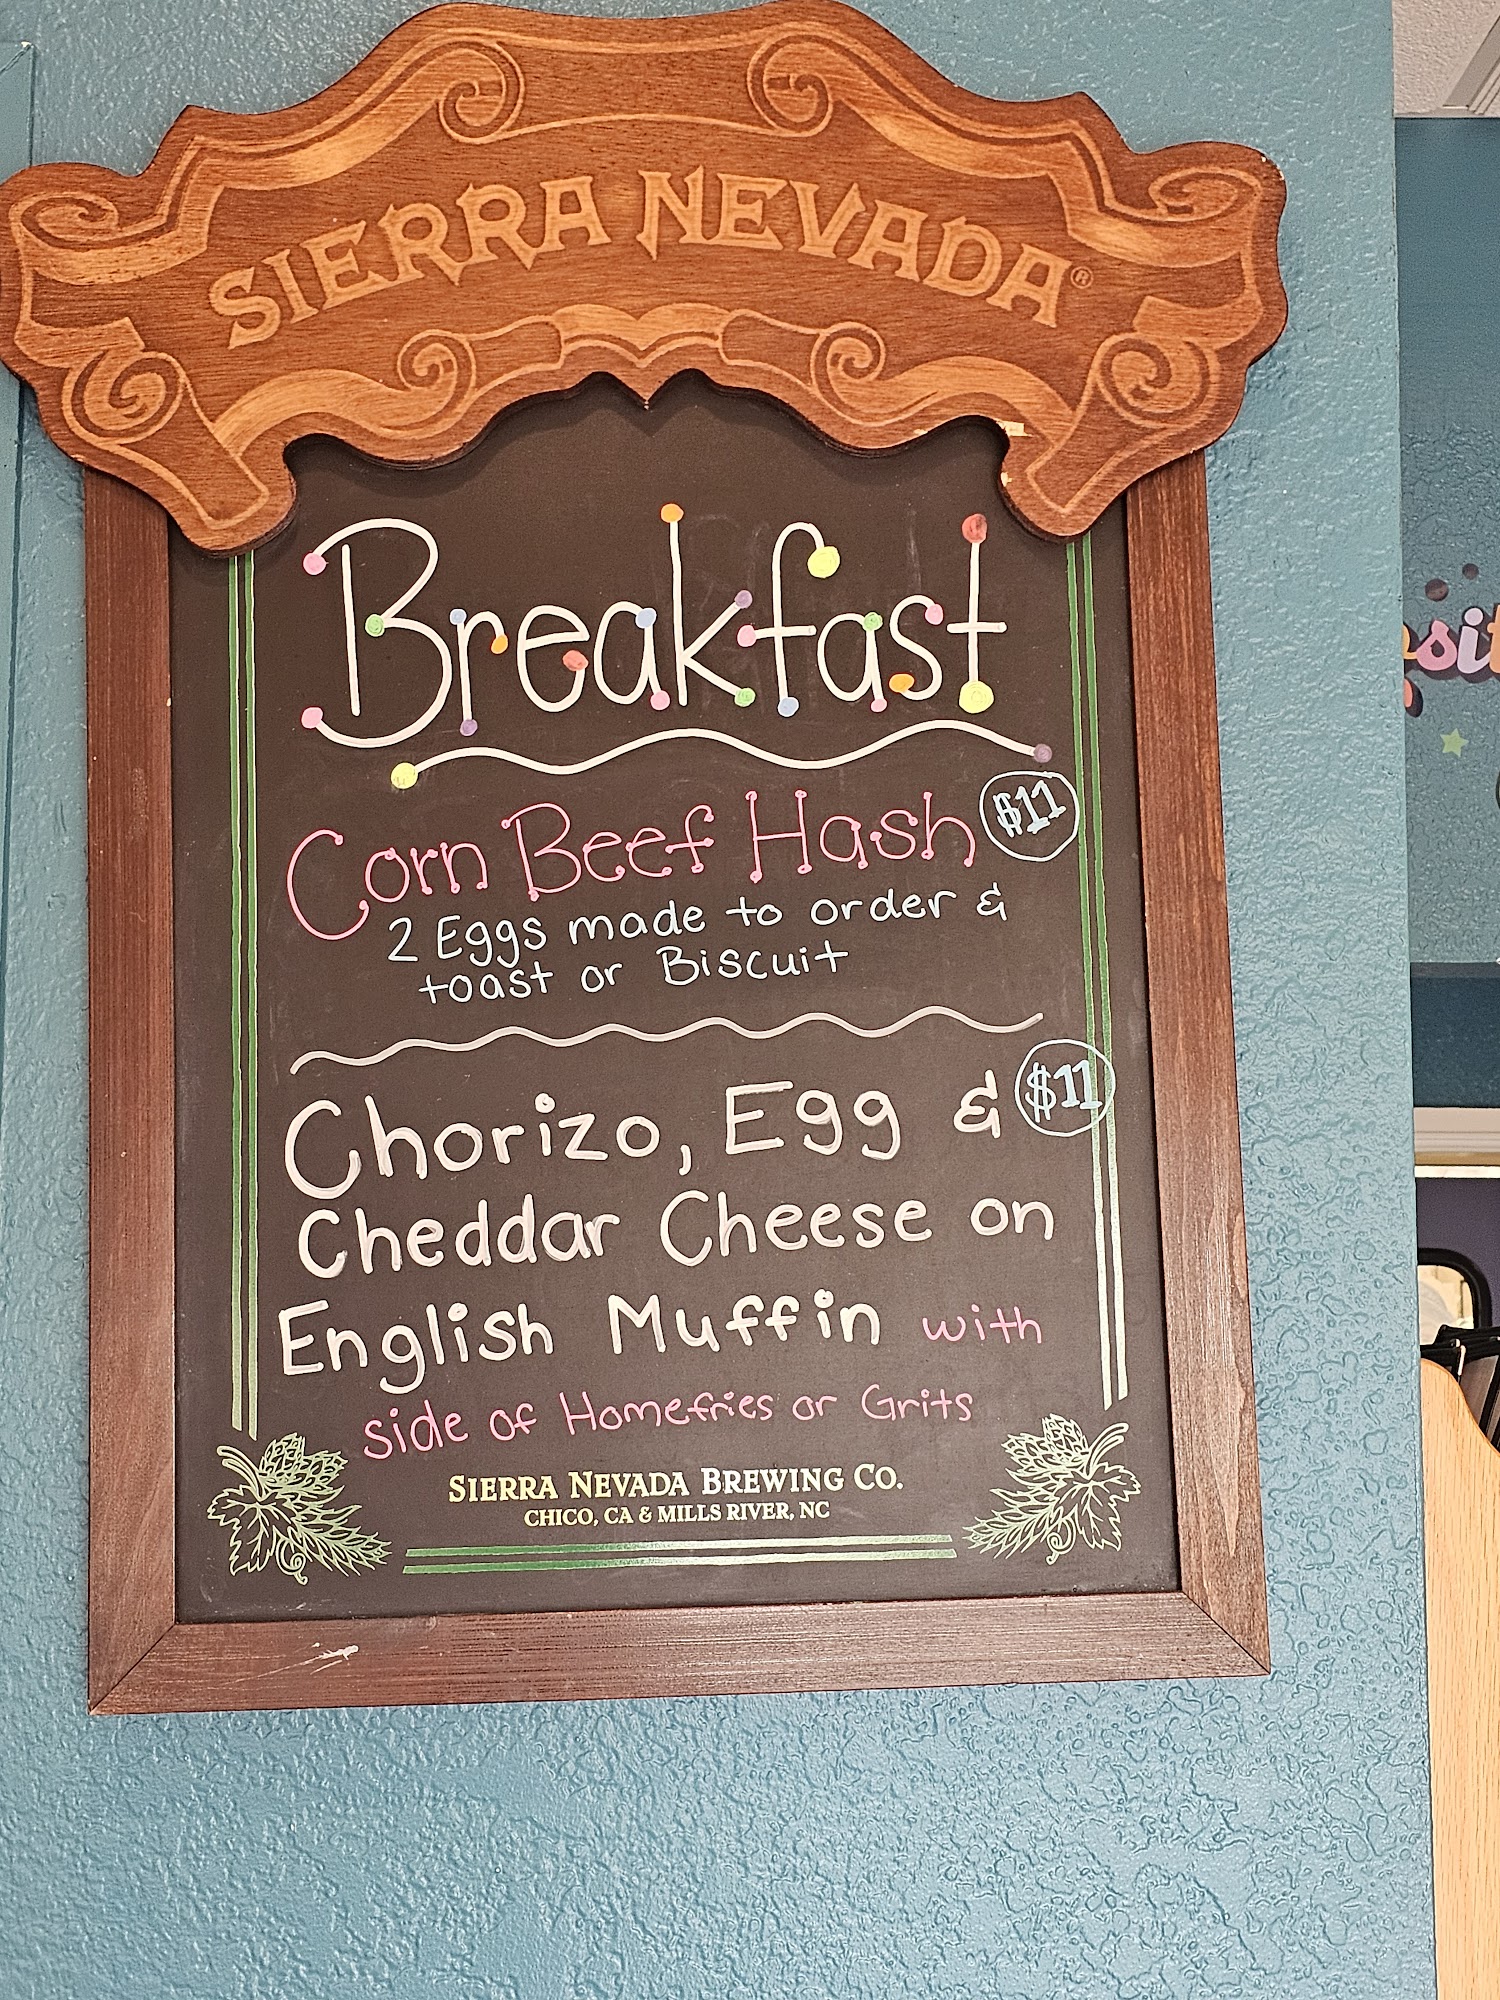 SIERRA NEVADA®
Breakfast
Corn Beef Hash $11
2 Eggs made to order &
toast or Biscuit
Chorizo, Egg & $11
Cheddar Cheese on
English Muffin with
side of Homefries or Grits
SIERRA NEVADA BREWING CO.
CHICO, CA & MILLS RIVER, NC